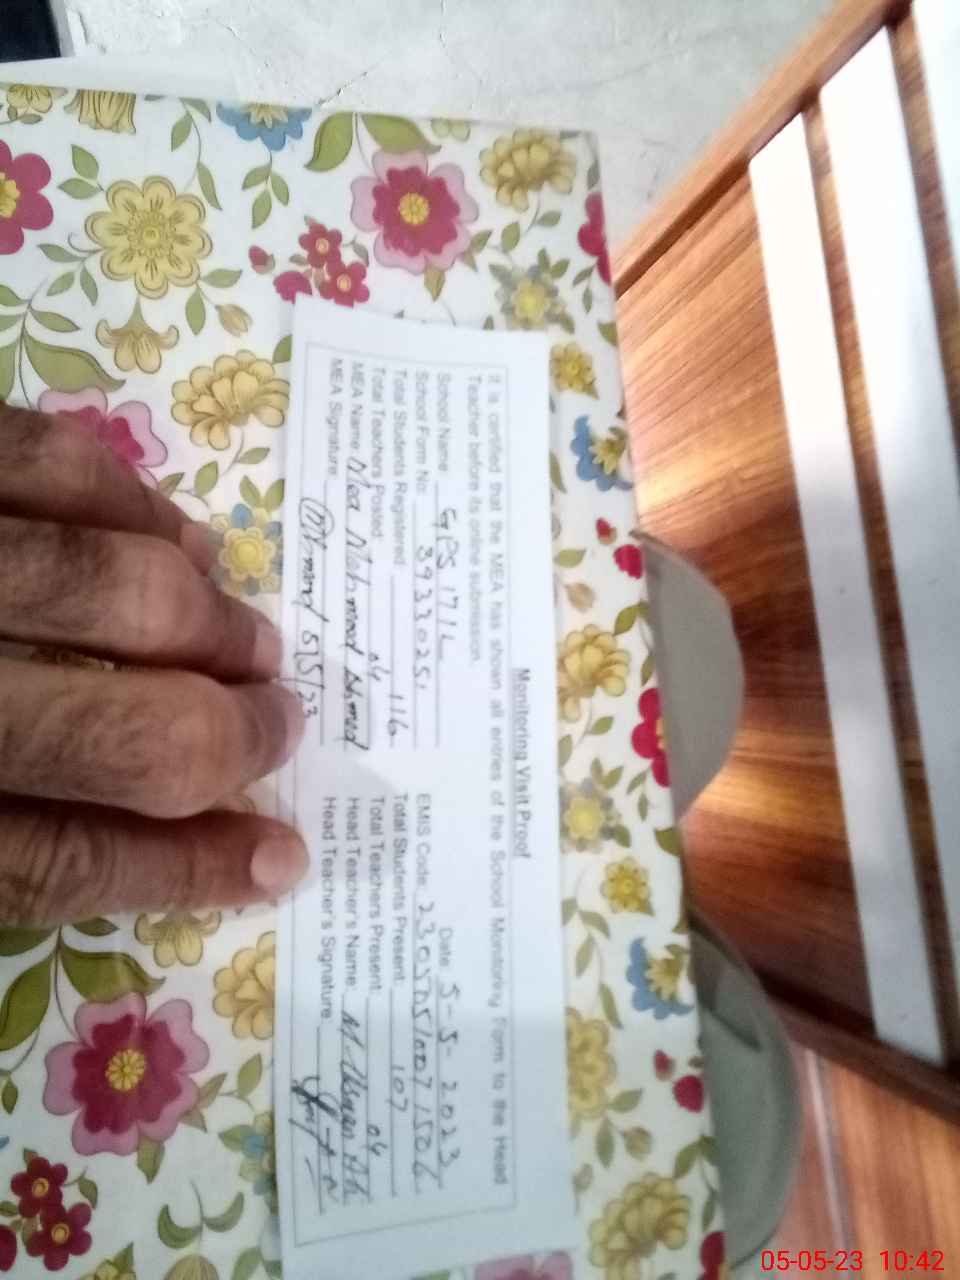 Monitoring Visit Proof
It is certified that the MEA has shown all entries of the School Monitoring Form to the Head
Teacher before its online submission.
Date: 5-5-2023
School Name GPS 171L
School Form No: 3933025 EMIS Code:
Total Students Registered 116 Total Students Present: 107
Total Teachers Posted: 04 Total Teachers Present: 04
MEA Name: Mea Mahmood Ahmed Head Teacher's Name: M. Ali
MEA Signature: 5/5/23 Head Teacher's Signature
05-05-23 10:42